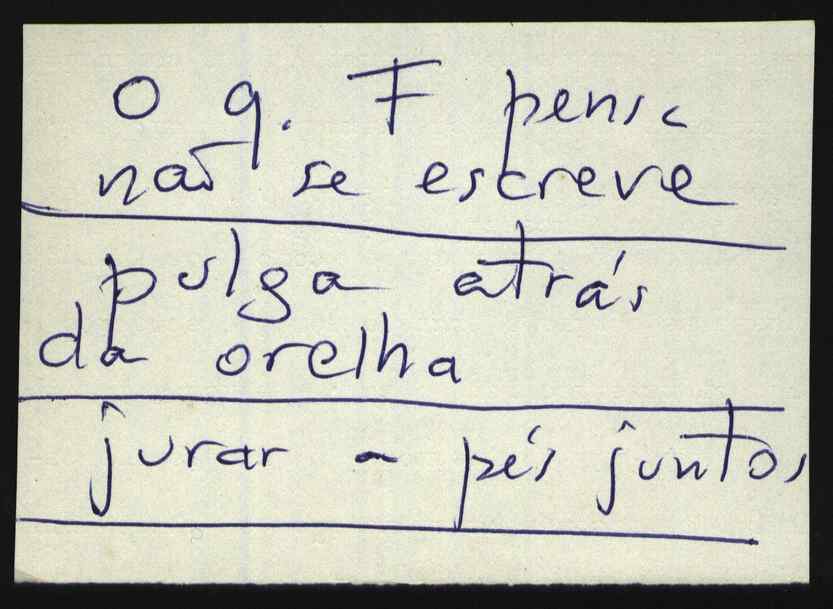 O q. F pensa
não se escreve
pulga atrás
da orelha
jurar - pés juntos